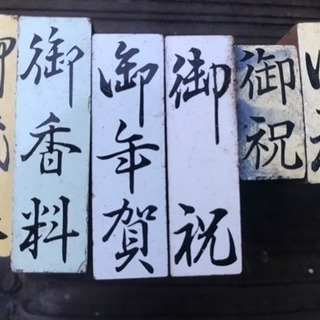 御香料
御年賀
御祝
御祝